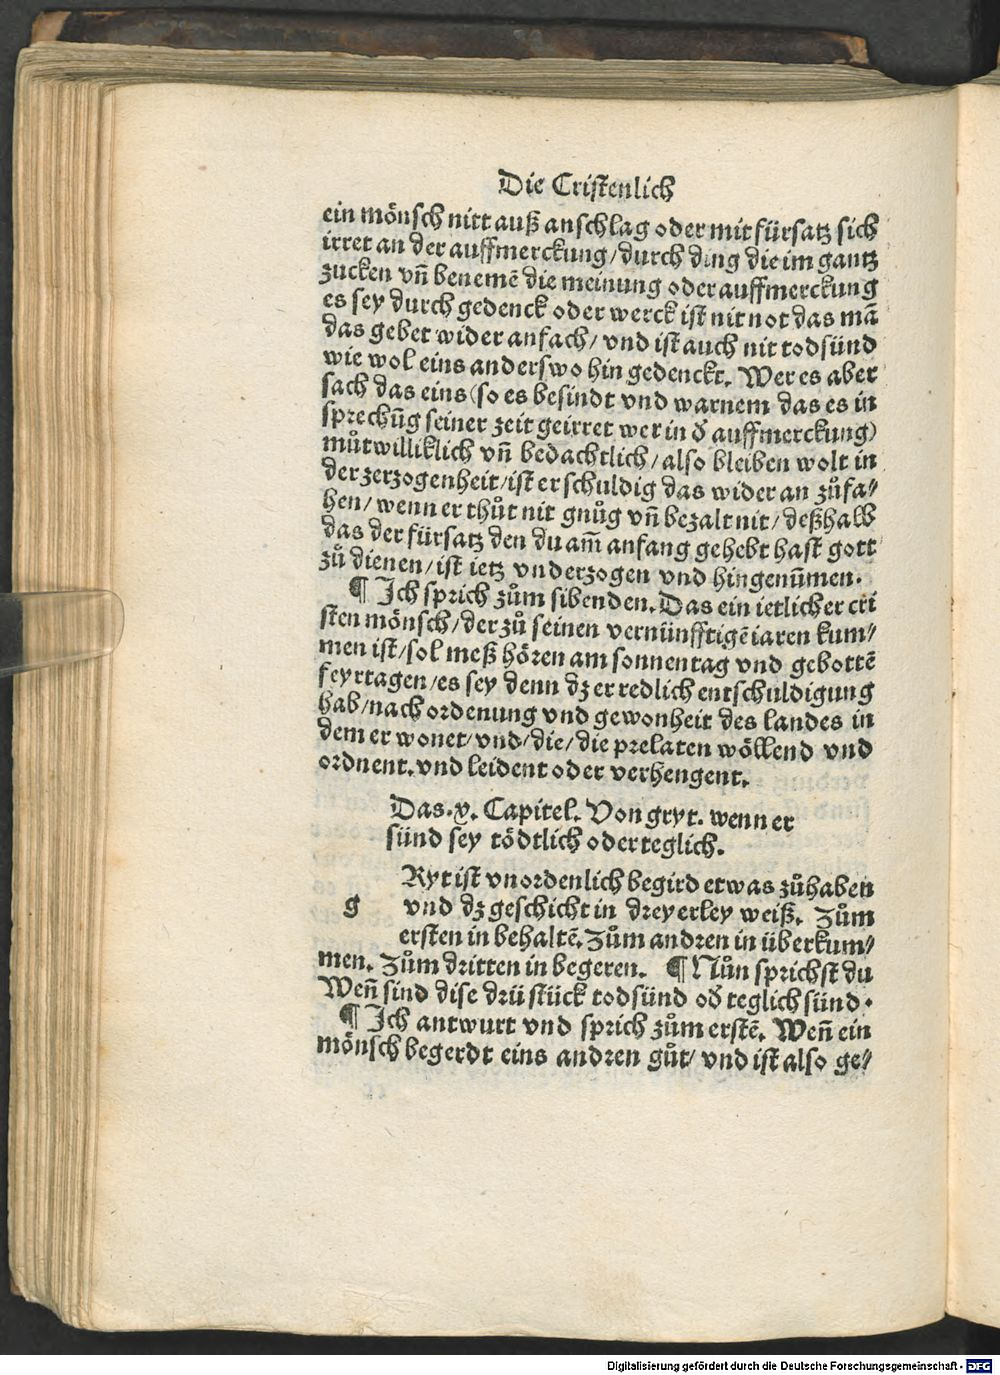 Die Cristenlich
ein mönsch nitt auß anschlag oder mit fürsatz sich
irret an der auffmerckung/durch ding die im gantz
zucken vn̄ benemē die meinung oder auffmerckung
es sey durch gedenck oder werck ist nit not das mā
das gebet wider anfach/ vnd ist auch nit todsünd
wie wol eins anderswo hin gedenckt. Wer es aber
sach das eins (so es besindt vnd warnem das es in
sprechūg seiner zeit geirret wer in d̄ auffmerckung)
můtwilliklich vn̄ bedachtlich/also bleiben wolt in
der zerzogenheit/ist er schuldig das wider an zůfa⸗
hen/ wenn er thůt nit gnůg vn̄ bezalt nit/ deßhalb
das der fürsatz den du am̄ anfang gehebt hast gott
zů dienen/ist ietz vnderzogen vnd hingenūmen.
¶ Ich sprich zům sibenden. Das ein ietlicher cri
sten mönsch/der zů seinen vernünfftigē iaren kum⸗
men ist/sol meß hören am sonnentag vnd gebottē
feyrtagen/es sey denn dz er redlich entschuldigung
hab/nach ordenung vnd gewonheit des landes in
dem er wonet/vnd/die/die prelaten wöllend vnd
ordnent. vnd leident oder verhengent.
Das .v. Capitel. Von gryt. wenn er
sünd sey tödtlich oder teglich.
g Ryt ist vnordenlich begird etwas zůhaben
vnd dz geschicht in dreyerley weiß. Zům
ersten in behaltē. Zům andren in überkum⸗
men. Zům dritten in begeren. ¶ Nůn sprichst du
Wen̄ sind dise drü stück todsünd od̄ teglich sünd.
¶ Ich antwurt vnd sprich zům erstē. Wen̄ ein
mönsch begerdt eins andren gůt/ vnd ist also ge⸗
Digitalisierung gefördert durch die Deutsche Forschungsgemeinschaft - DFG